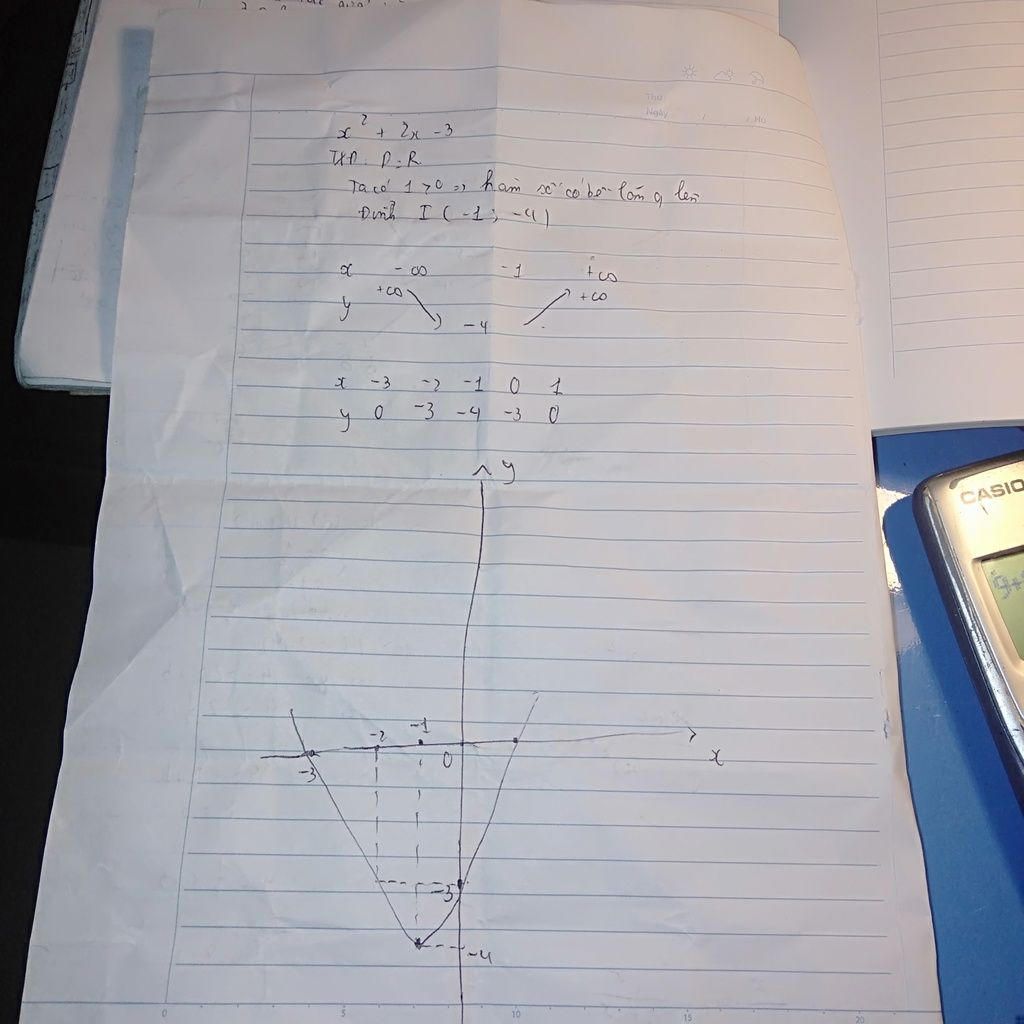 x² + 2x - 3
TXĐ: D = R
Ta có 1 > 0 => hàm số có bề lõm q lên
Đỉnh I ( -1 ; -4 )
x -∞ -1 +∞
y +∞ -4 +∞
x -3 -2 -1 0 1
y 0 -3 -4 -3 0
y
-3 -2 -1 0 x
-3
-4
Thứ
Ngày / / No
CASIO
0 5 10 15 20